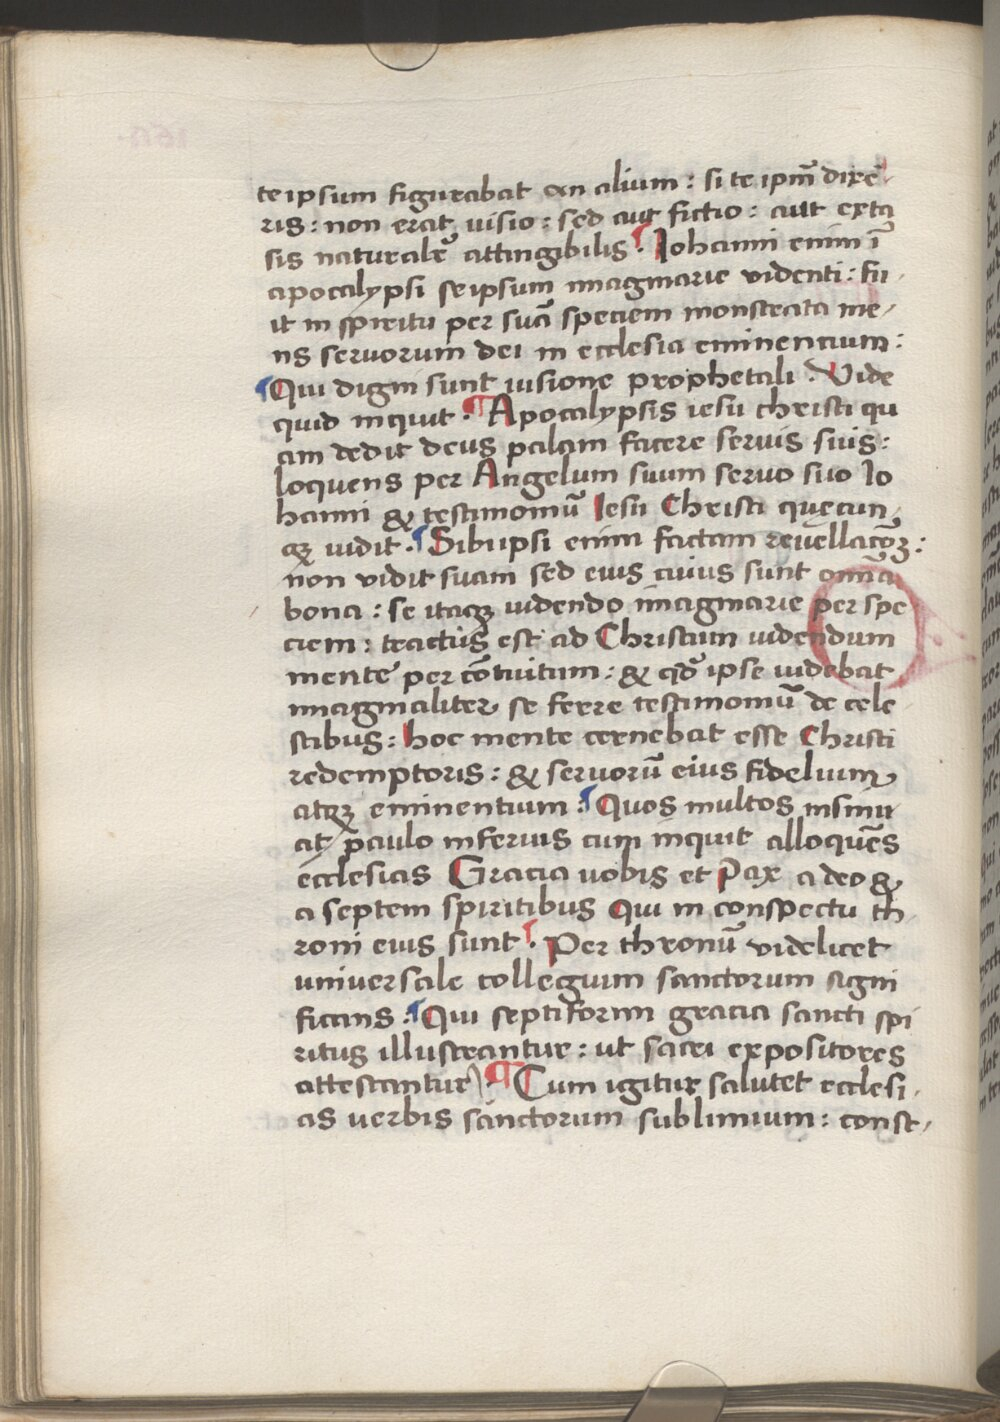 te ipsum figurabat an alium : si te ipm̄ dixe᷑
ris : non erat visio : sed aut fictio : aut exta
sis naturalr̄ attingibilis . Johanni enim ī
apocalypsi seipsum imaginarie videnti : fu
it in spiritu per suā speciem monstrata me
ns servorum dei in ecclesia eminentium :
Qui digni sunt uisione prophetali . Vide
quid inquit . Apocalypsis iesu christi qu
am dedit deus palam facere servis suis :
loquens per Angelum suum servo suo Io
hanni & testimoniū Iesu Christi quęcun
qꝫ uidit . Sibiipsi enim factam reuellacōꝫ :
non vidit suam sed eius cuius sunt om̄ia
bona : se itaqꝫ uidendo imaginarie per spe
ciem : tractus est ad Christum uidendum
mente per cōtuitum : & qđ ipse uidebat
imaginaliter se ferre testimoniū de cele
stibus : hoc mente cernebat esse Christi
redemptoris : & servorū eius fidelium
atqꝫ eminentium : Quos multos insinu
at paulo inferius cum inquit alloquēs
ecclesias Gracia uobis et Pax a deo &
a septem spiritibus Qui in conspectu th
roni eius sunt . Per thronū videlicet
universale collegium sanctorum signi
ficans : Qui septiformi gracia sancti spi
ritus illustrantur : ut sacri expositores
attestantur ) . Cum igitur salutet ecclesi
as uerbis sanctorum sublimium : const